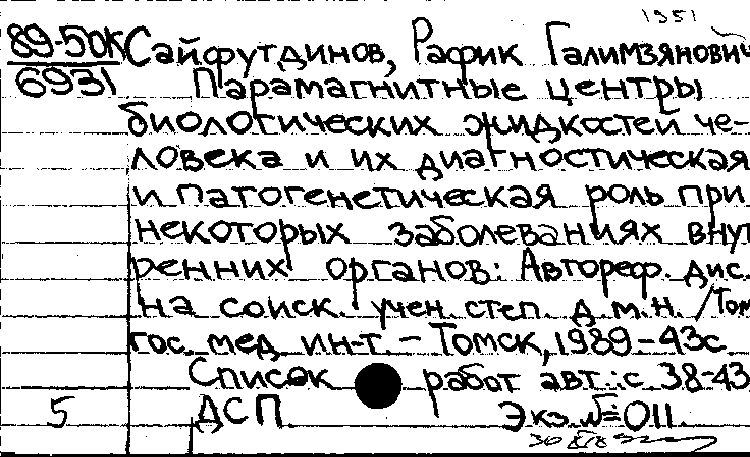 1951
89-50К Сайфутдинов, Рафик Галимзянович
6931 Парамагнитные центры
биологических жидкостей че-
ловека и их диагностическая
и патогенетическая роль при
некоторых заболеваниях внут
ренних органов: Автореф. дис.
на соиск. учен. степ. д. м. н. / Том
гос. мед. ин-т. – Томск, 1989 – 43с
Список работ авт.: с 38-43
5 ДСП Экз. № 011.